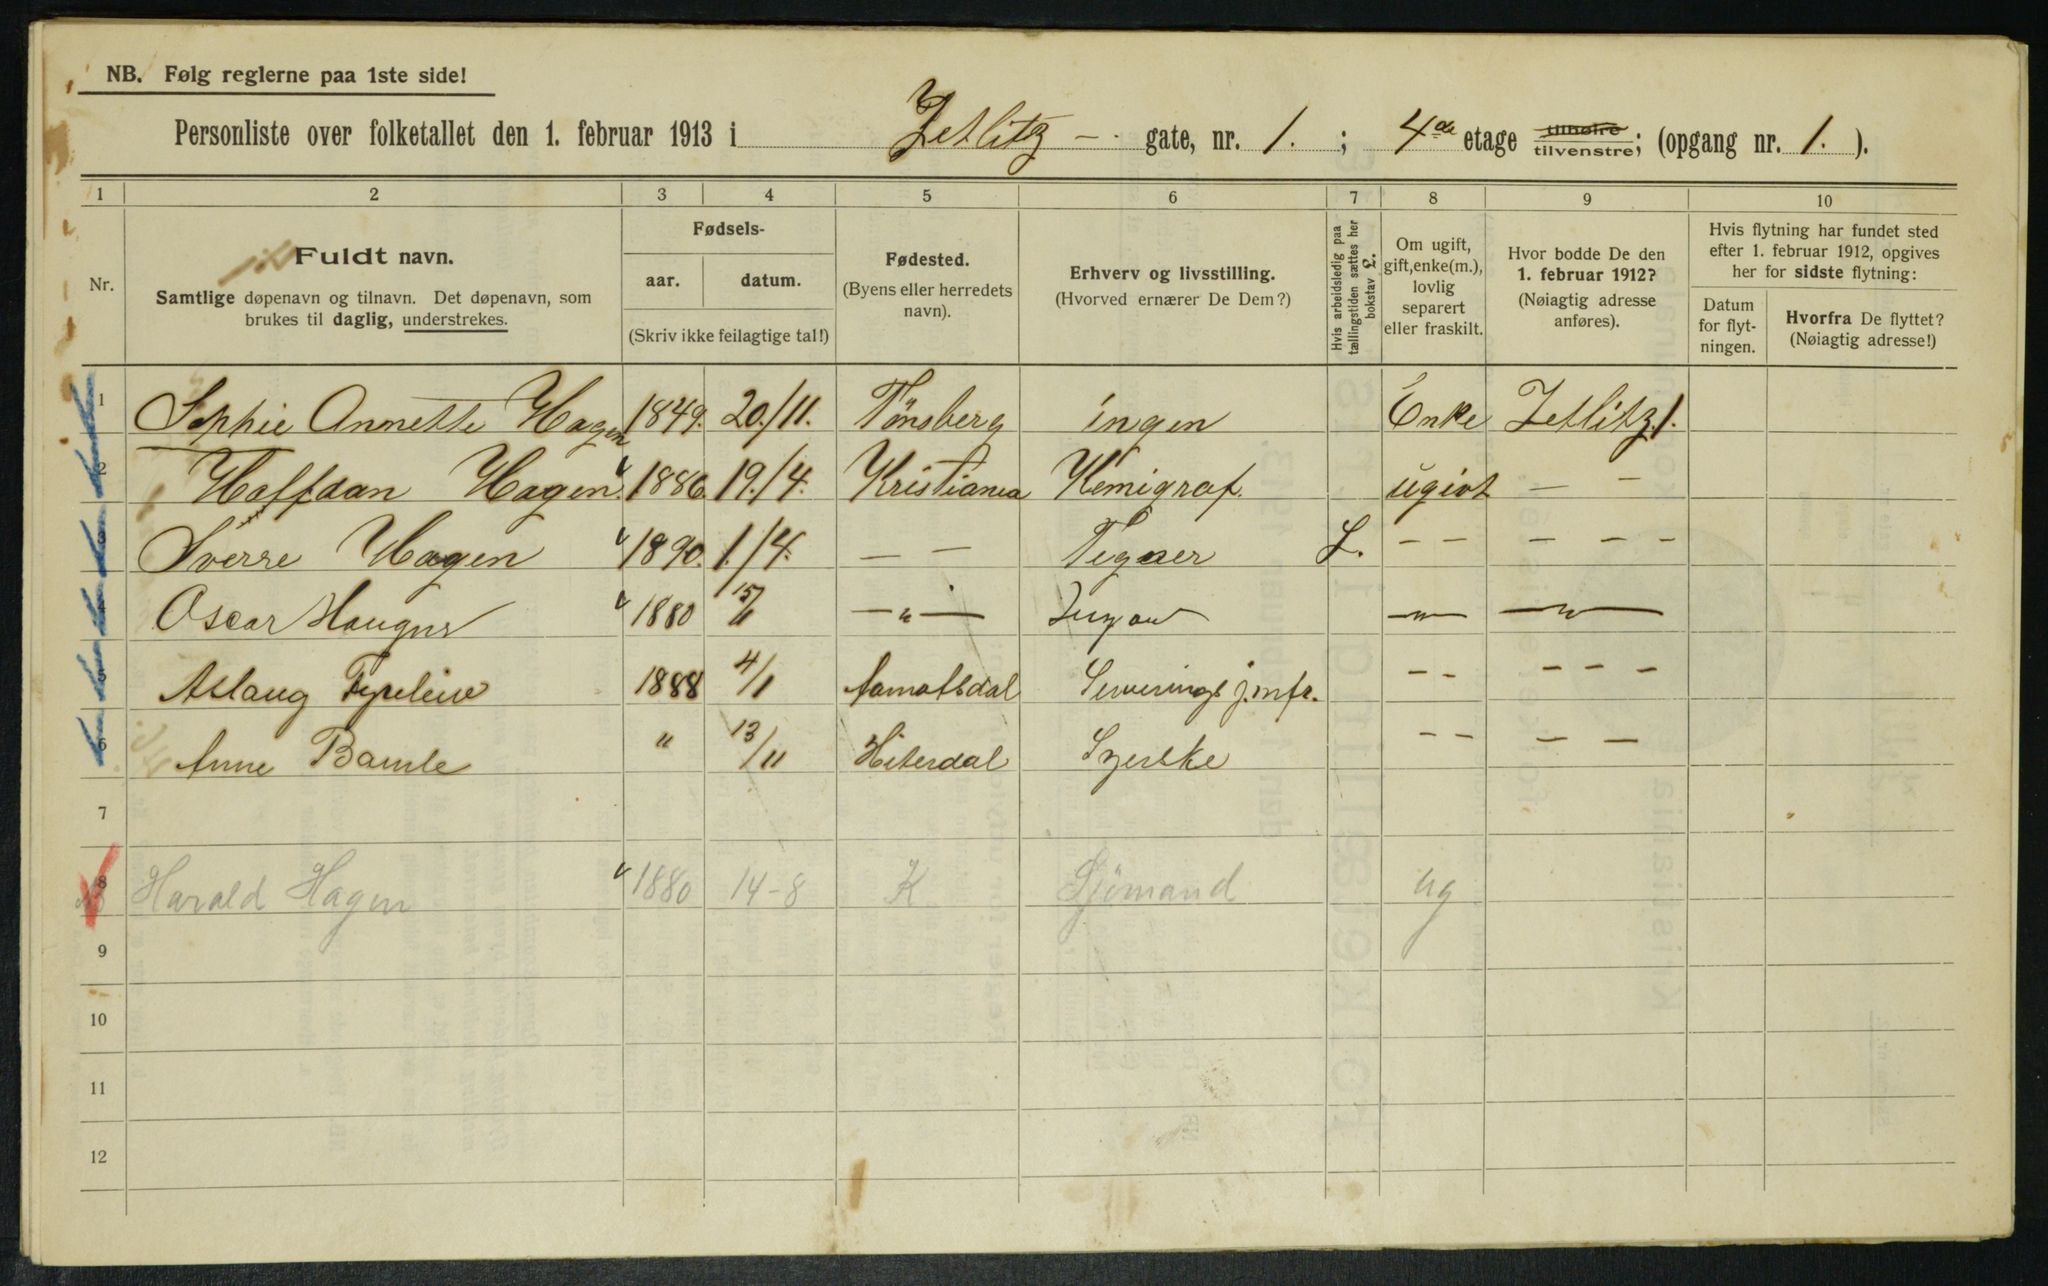 NB. Følg reglerne paa 1ste side!
Personliste over folketallet den 1. februar 1913 i Zetlitz - gate, nr. 1. ; 4de etage tilhøire tilvenstre; (opgang nr. 1. ).
1 2 3 4 5 6 7 8 9 10
Nr.
Fuldt navn.
Samtlige døpenavn og tilnavn. Det døpenavn, som
brukes til daglig, understrekes.
Fødsels-
aar. datum.
(Skriv ikke feilagtige tal!)
Fødested.
(Byens eller herredets
navn).
Erhverv og livsstilling.
(Hvorved ernærer De Dem?)
Hvis arbeidsledig paa
tællingstiden sættes her
bokstav L.
Om ugift,
gift, enke(m.),
lovlig
separert
eller fraskilt.
Hvor bodde De den
1. februar 1912?
(Nøiagtig adresse
anføres).
Hvis flytning har fundet sted
efter 1. februar 1912, opgives
her for sidste flytning:
Datum
for flyt-
ningen.
Hvorfra De flyttet?
(Nøiagtig adresse!)
1 Sophie Annette Hagen 1849. 20./11. Tönsberg ingen Enke Zetlitz. 1.
2 Halfdan Hagen 1886. 19./4. Kristiania Kemigraf. ugivt — –
3 Sverre Hagen 1890. 1./4. — — Tegner L. – – – – –
4 Oscar Haugus 1880 15/6 — " — — " — — " —
5 Aslaug 1888 4/1 Aamotsdal Serverings jmfr. – – – – –
6 Anne Bamle " 13/11 Hiterdal Syerske – – – –
7
8 Harald Hagen 1880 14-8 K Sjömand ug
9
10
11
12